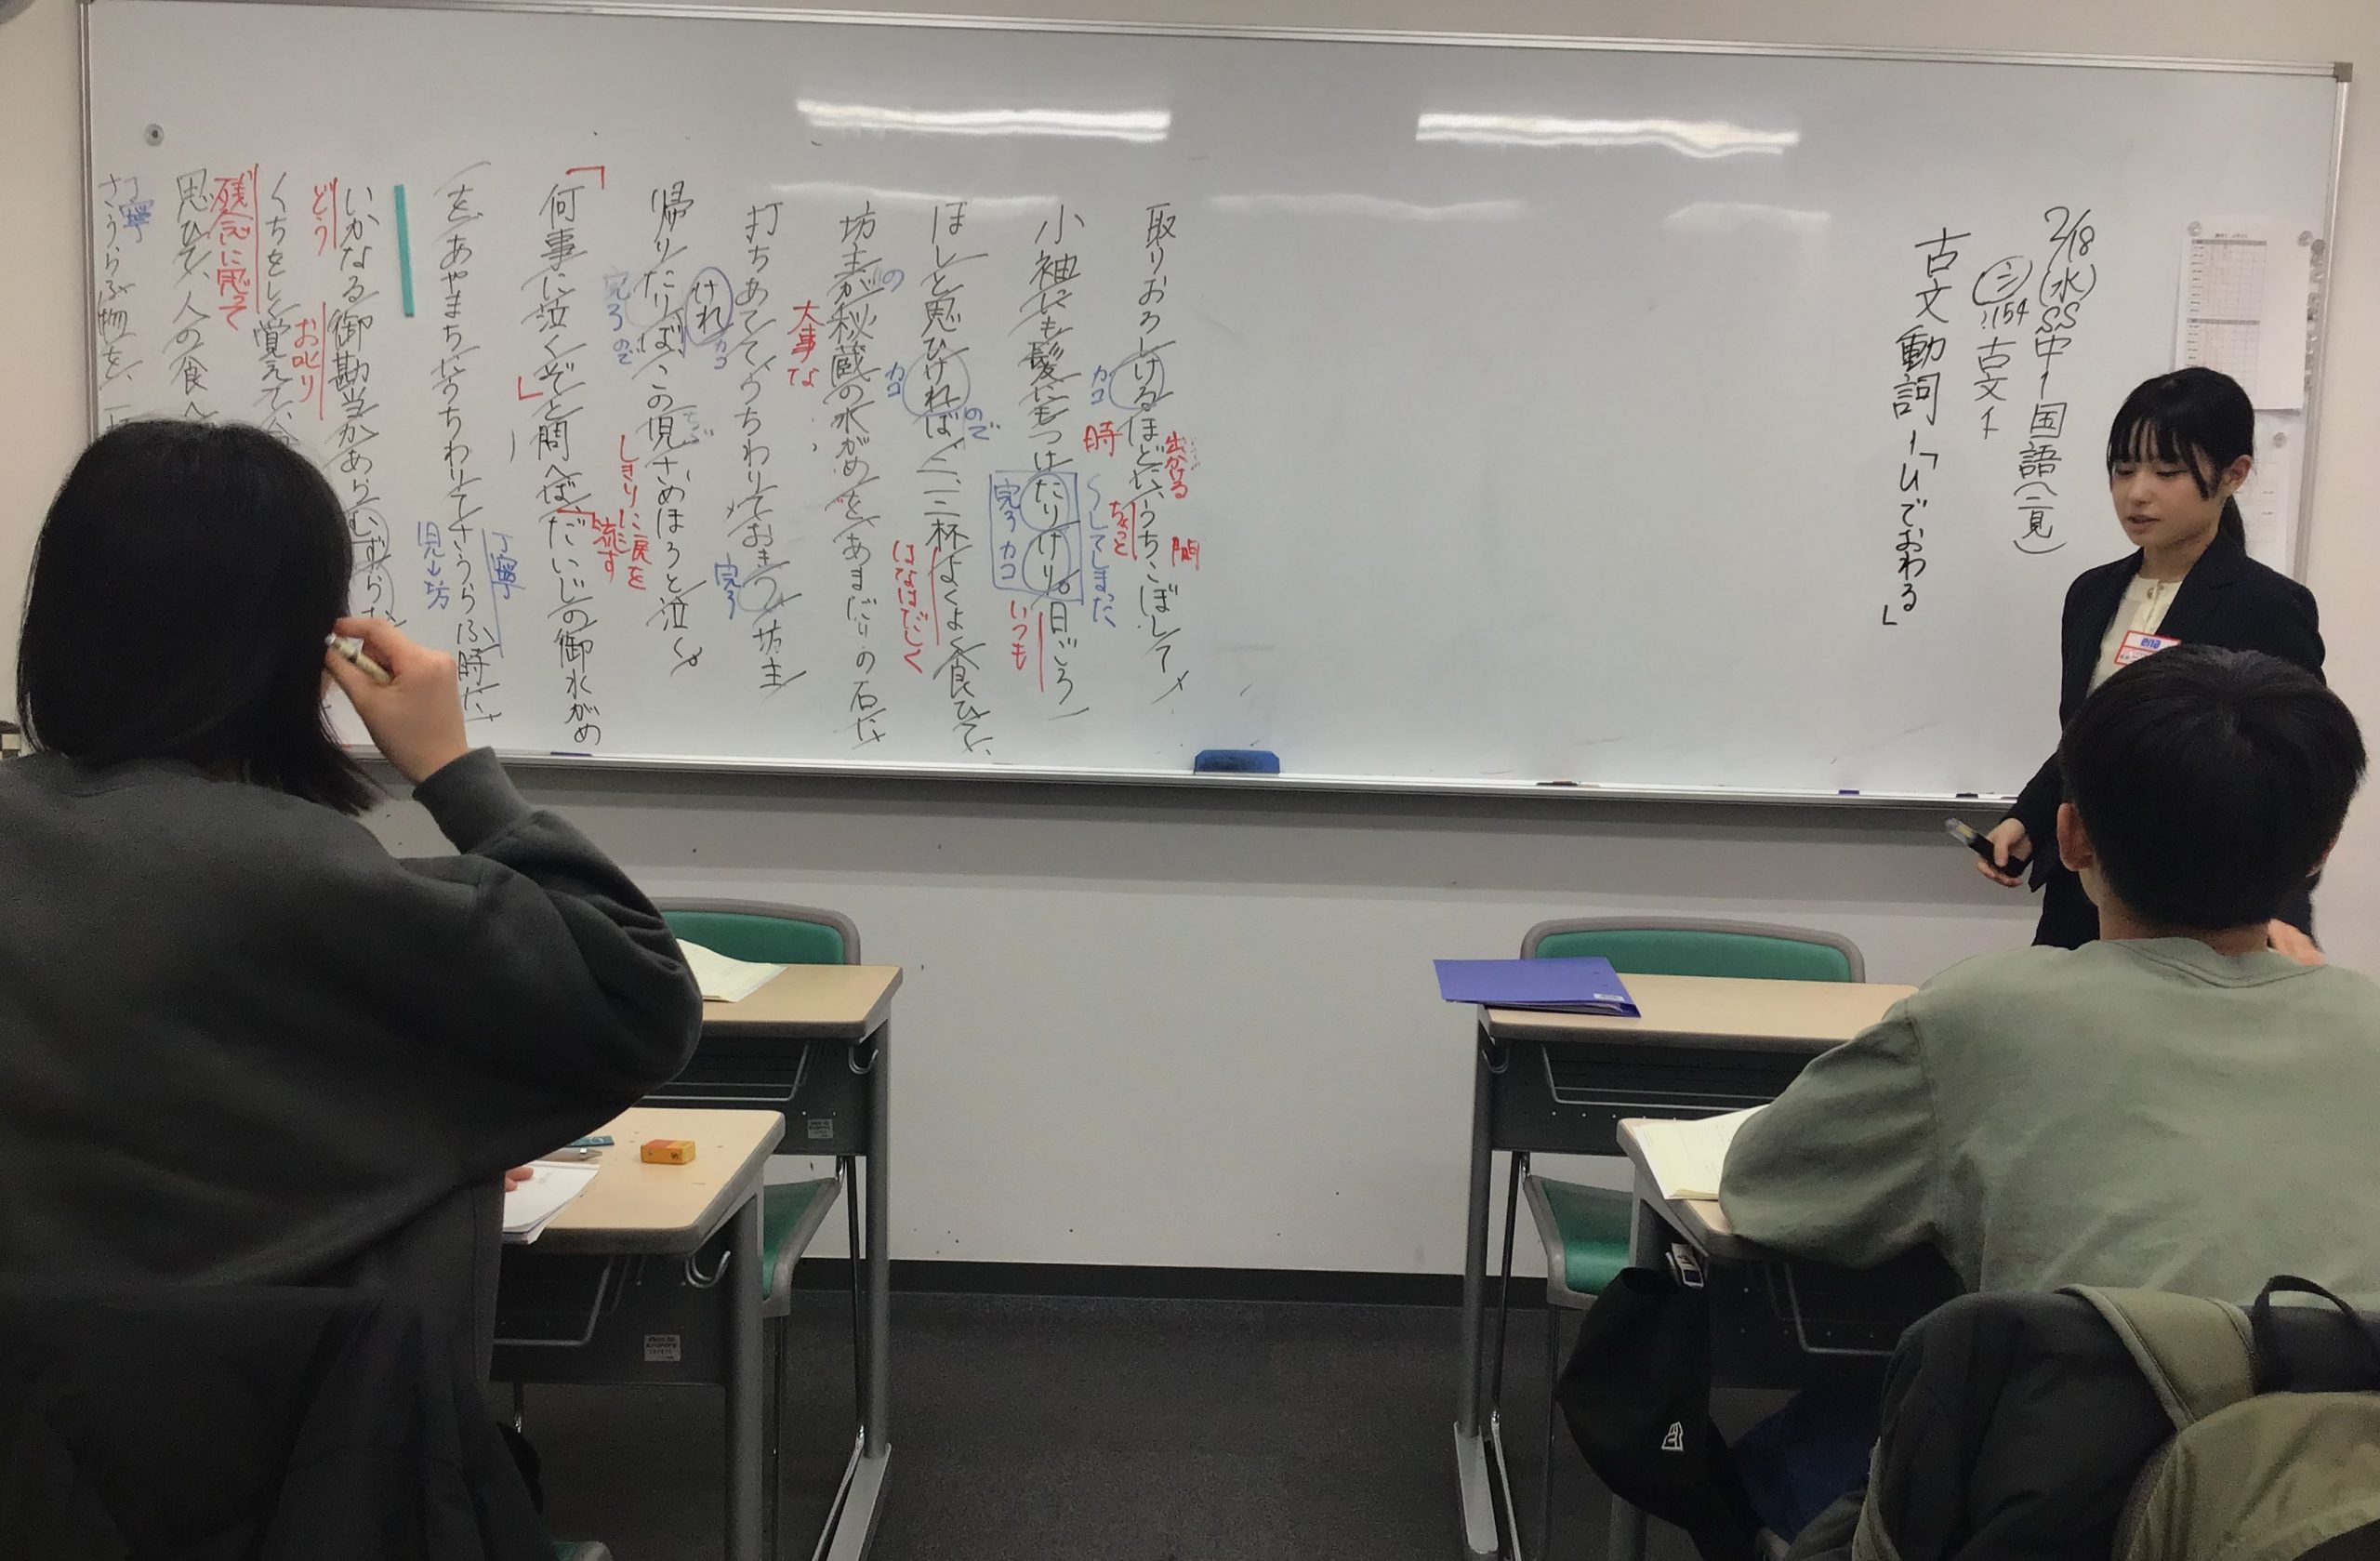 2/18(水)SS中1国語(二見)
古文
古文動詞
でおわる」
取りおろしけるほどに、うちこぼして、
カコ
時
出かける
ちょっと
間
小袖にも髪にもつけたりけり。日ごろ
〜してしまった
完了 カコ
いつも
ほしと思ひければ、二、三杯よくよく食ひて、
カコ
ので
はなはだしく
坊主が秘蔵の水がめをあまだりの石に
の
大事な
打ちあてて、うちわりておきつ。坊主
けれ
カコ
完了
帰りたりば、この児さめほろと泣く。
完了 ので
しきりに涙を
流す
「何事に泣くぞ」と問へば、「だいじの御水がめ
を、あやまちにうちわりてさうらふ時に、
丁寧
児→坊
いかなる御勘当かあらむずらむ
どう
お叱り
くちをしく覚えて、
残念に思って
思ひて、人の食へ
さうらふ物を、一
丁寧
ena